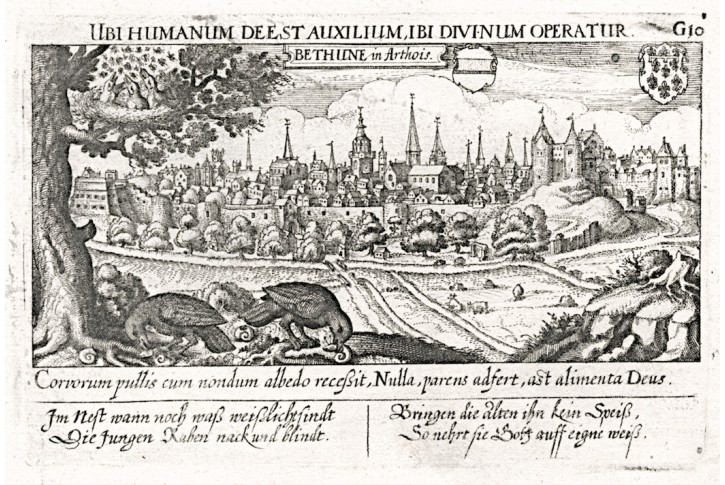 UBI HUMANUM DEEST AUXILIUM, IBI DIVINUM OPERATUR.
G10
BETHUNE in Arthois.
Corvorum pullis cum nondum albedo recessit, Nulla, parens adfert, ast alimenta Deus.
Im Nest wann noch waß weißlicht sindt
Die Jungen Raben nack und blindt.
Bringen die alten ihn kein Speiß,
So nehrt sie Gott auff eigne weiß.